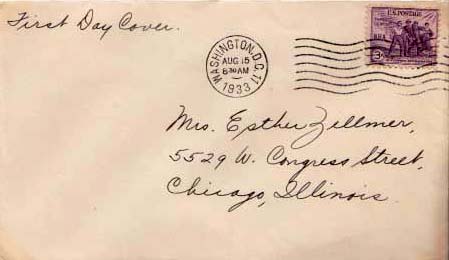 First Day Cover.
U.S. POSTAGE
NRA
3¢
WASHINGTON, D.C. 11
AUG 15
8 30 AM
1933
Mrs. Esther Zellmer,
5529 W. Congress Street,
Chicago, Illinois.